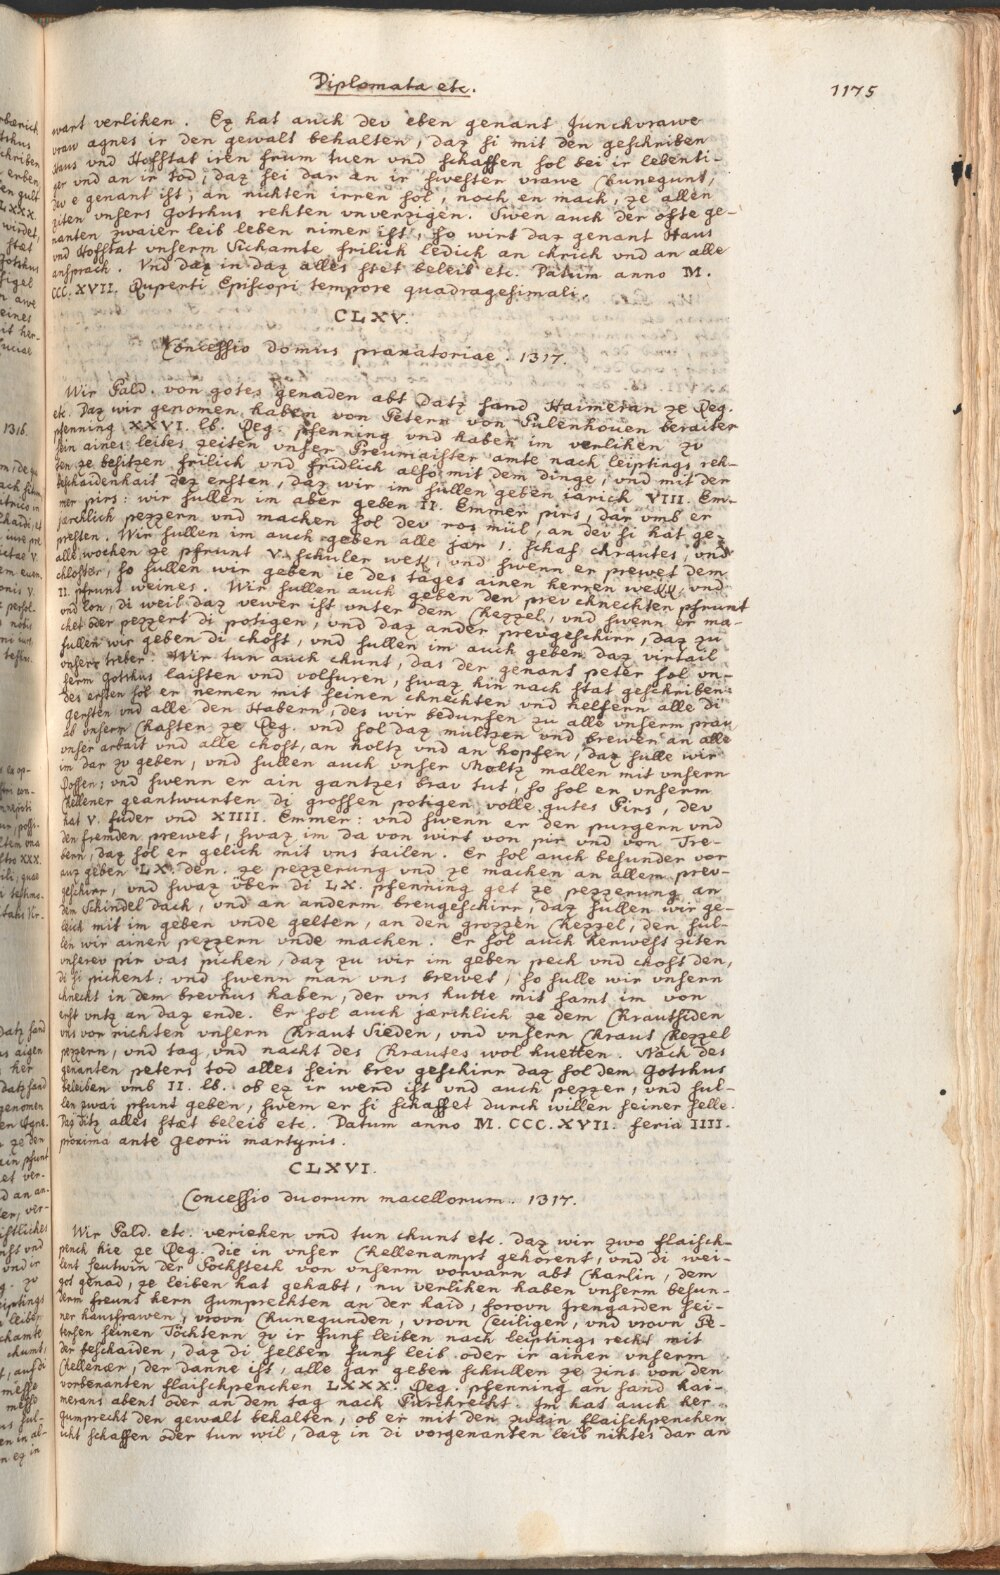 Diplomata etc.
1175
wart verlihen. Ez hat auch dev eben genant Junchvrawe
vrau agnes ir den gewalt behalten, daz si mit den geschriben
Haus vnd Hofstat iren frum tuen vnd schaffen sol bei ir lebenti-
ger vnd an ir tod, daz sei dar an ir swester vrawe Chunegunt,
dev e genant ist, an nichten irren sol, noch en mach, ze allen
ziten vnsers Gotshus rehten vnverzigen. Swen auch der ofte ge-
nanten zwaier leib leben nimer ist, so wirt daz genant Haus
vnd Hofstat vnserm Sichamte frilich ledich an chrich vnd an alle
ansprach. Vnd daz in daz alles stet beleib etc. Datum anno M.
CCC. XVII. Ruperti Episcopi tempore quadragesimali.
CLXV.
Concessio domus praxatoriae. 1317.
Wir Bald. von gotes genaden abt Datz sand Haimeran ze Reg.
etc. Daz wir genomen haben von Petern von Pulenhouen beraiter
pfenning XXVI. lb. Reg. pfenning vnd haben im verlihen zu
sein aines leibes zeiten vnser Preumaister amte nach leiptings reh-
ten ze besitzen frilich vnd fridlich also mit dem dinge, vnd mit der
beschaidenhait des ersten, daz wir im sullen geben iarich VIII. Em-
mer pirs: wir sullen im aber geben II. Emmer pirs, dar vmb er
jærchlich pezzern vnd machen sol dev ros mül, an dev si hat ge-
presten. Wir sullen im auch geben alle jar 1. schaf chrautes, vnd
alle wochen ze pfrunt V. schuler wek, vnd swenn er prewet dem
chloster, so sullen wir geben ie des tages ainen herren wekk, vnd
II. pfrunt weines. Wir sullen auch geben den prev chnechten pfrunt
vnd lon, di weil daz vewer ist vnter dem Chezzel, vnd swenn er ma-
chet oder pezzert di potigen, vnd daz ander prevgeschirr, daz zu
sullen wir geben di chost, vnd sullen im auch geben daz virtail
vnserr treber. Wir tun auch chunt, das der genant peter sol vn-
serm Gotshus laisten vnd volfuren, swaz hin nach stat geschriben:
des ersten sol er nemen mit seinen chnechten vnd helfern alle di
gersten vnd alle den Habern, des wir bedurfen zu alle vnserm prau
ab vnserm Chasten ze Reg. vnd sol daz mültzen vnd brewen an alle
vnser arbait vnd alle chost, an holtz vnd an hopfen, daz sulle wir
im dar zu geben, vnd sullen auch vnser Maltz mallen mit vnsern
Rossen; vnd swenn er ain gantzes brav tut, so sol en vnserm
Chellener geantwurten di grossen potigen volle gutes Pirs, dev
hat V. fuder vnd XIIII. Emmer: vnd swenn er den purgern vnd
den fremden prewet, swaz im da von wirt von pir vnd von Tre-
bern, daz sol er gelich mit vns tailen. Er sol auch besunder vor
auz geben LX. den. ze pezzerung vnd ze machen an allem prev-
geschirr, vnd swaz über di LX. pfenning get ze pezzerung an
dem Schindel dach, vnd an anderm breugeschirr, daz sullen wir ge-
leich mit im geben vnde gelten, an den grozzen Chezzel, den sul-
len wir ainen pezzern vnde machen. Er sol auch herwest ziten
vnserev pir vas pichen, daz zu wir im geben pech vnd chost den,
di si pichent: vnd swenn man vns brewet, so sulle wir vnsern
chnecht in dem brevhus haben, der vns hutte mit samt im von
erst vntz an daz ende. Er sol auch jærchlich ze dem Chrautsiden
vns vor richten vnsern Chraut Sieden, vnd vnsern Chraut Chezzel
pezzern, vnd tag vnd nacht des Chrautes wol huetten. Nach des
genanten peters tod alles sein brev geschirr daz sol dem Gotshus
beleiben vmb II. lb. ob ez ir werd ist vnd auch pezzer, vnd sul-
len zwai pfunt geben, swem er si schaffet durch willen seiner selle.
Daz ditz alles stæt beleib etc. Datum anno M. CCC. XVII. feria IIII.
proxima ante Georii martyris.
CLXVI.
Concessio duorum macellorum. 1317.
Wir Bald. etc. veriehen vnd tun chunt etc. daz wir zwo flaisch-
pench hie ze Reg. die in vnser Chellenampt gehörent, vnd di wei-
lent Leutwin der Pochstech von vnserm vorvarn abt Charlin, dem
got genad, ze leiben hat gehabt, nu verlihen haben vnserm besun-
derm freunt hern Gumprechten an der haid, forovn Jrengarden sei-
ner hausfrawen, vrovn Chunegunden, vrovn Ceciligen, vnd vrovn Pe-
tersen seinen Töchtern zu ir funf leiben nach leiptings recht mit
der beschaiden, daz di selben funf leib oder ir ainer vnserm
Chellenær, der danne ist, alle jar geben schullen ze zins von den
vorbenanten flaischpenchen LXXX. Reg. pfenning an sand hai-
merans abent oder an dem tag nach Purchrecht. Im hat auch her
Gumprecht den gewalt behalten, ob er mit den zwain flaischpenchen
icht schaffen oder tun wil, daz in di vorgenanten leib nihtes dar an